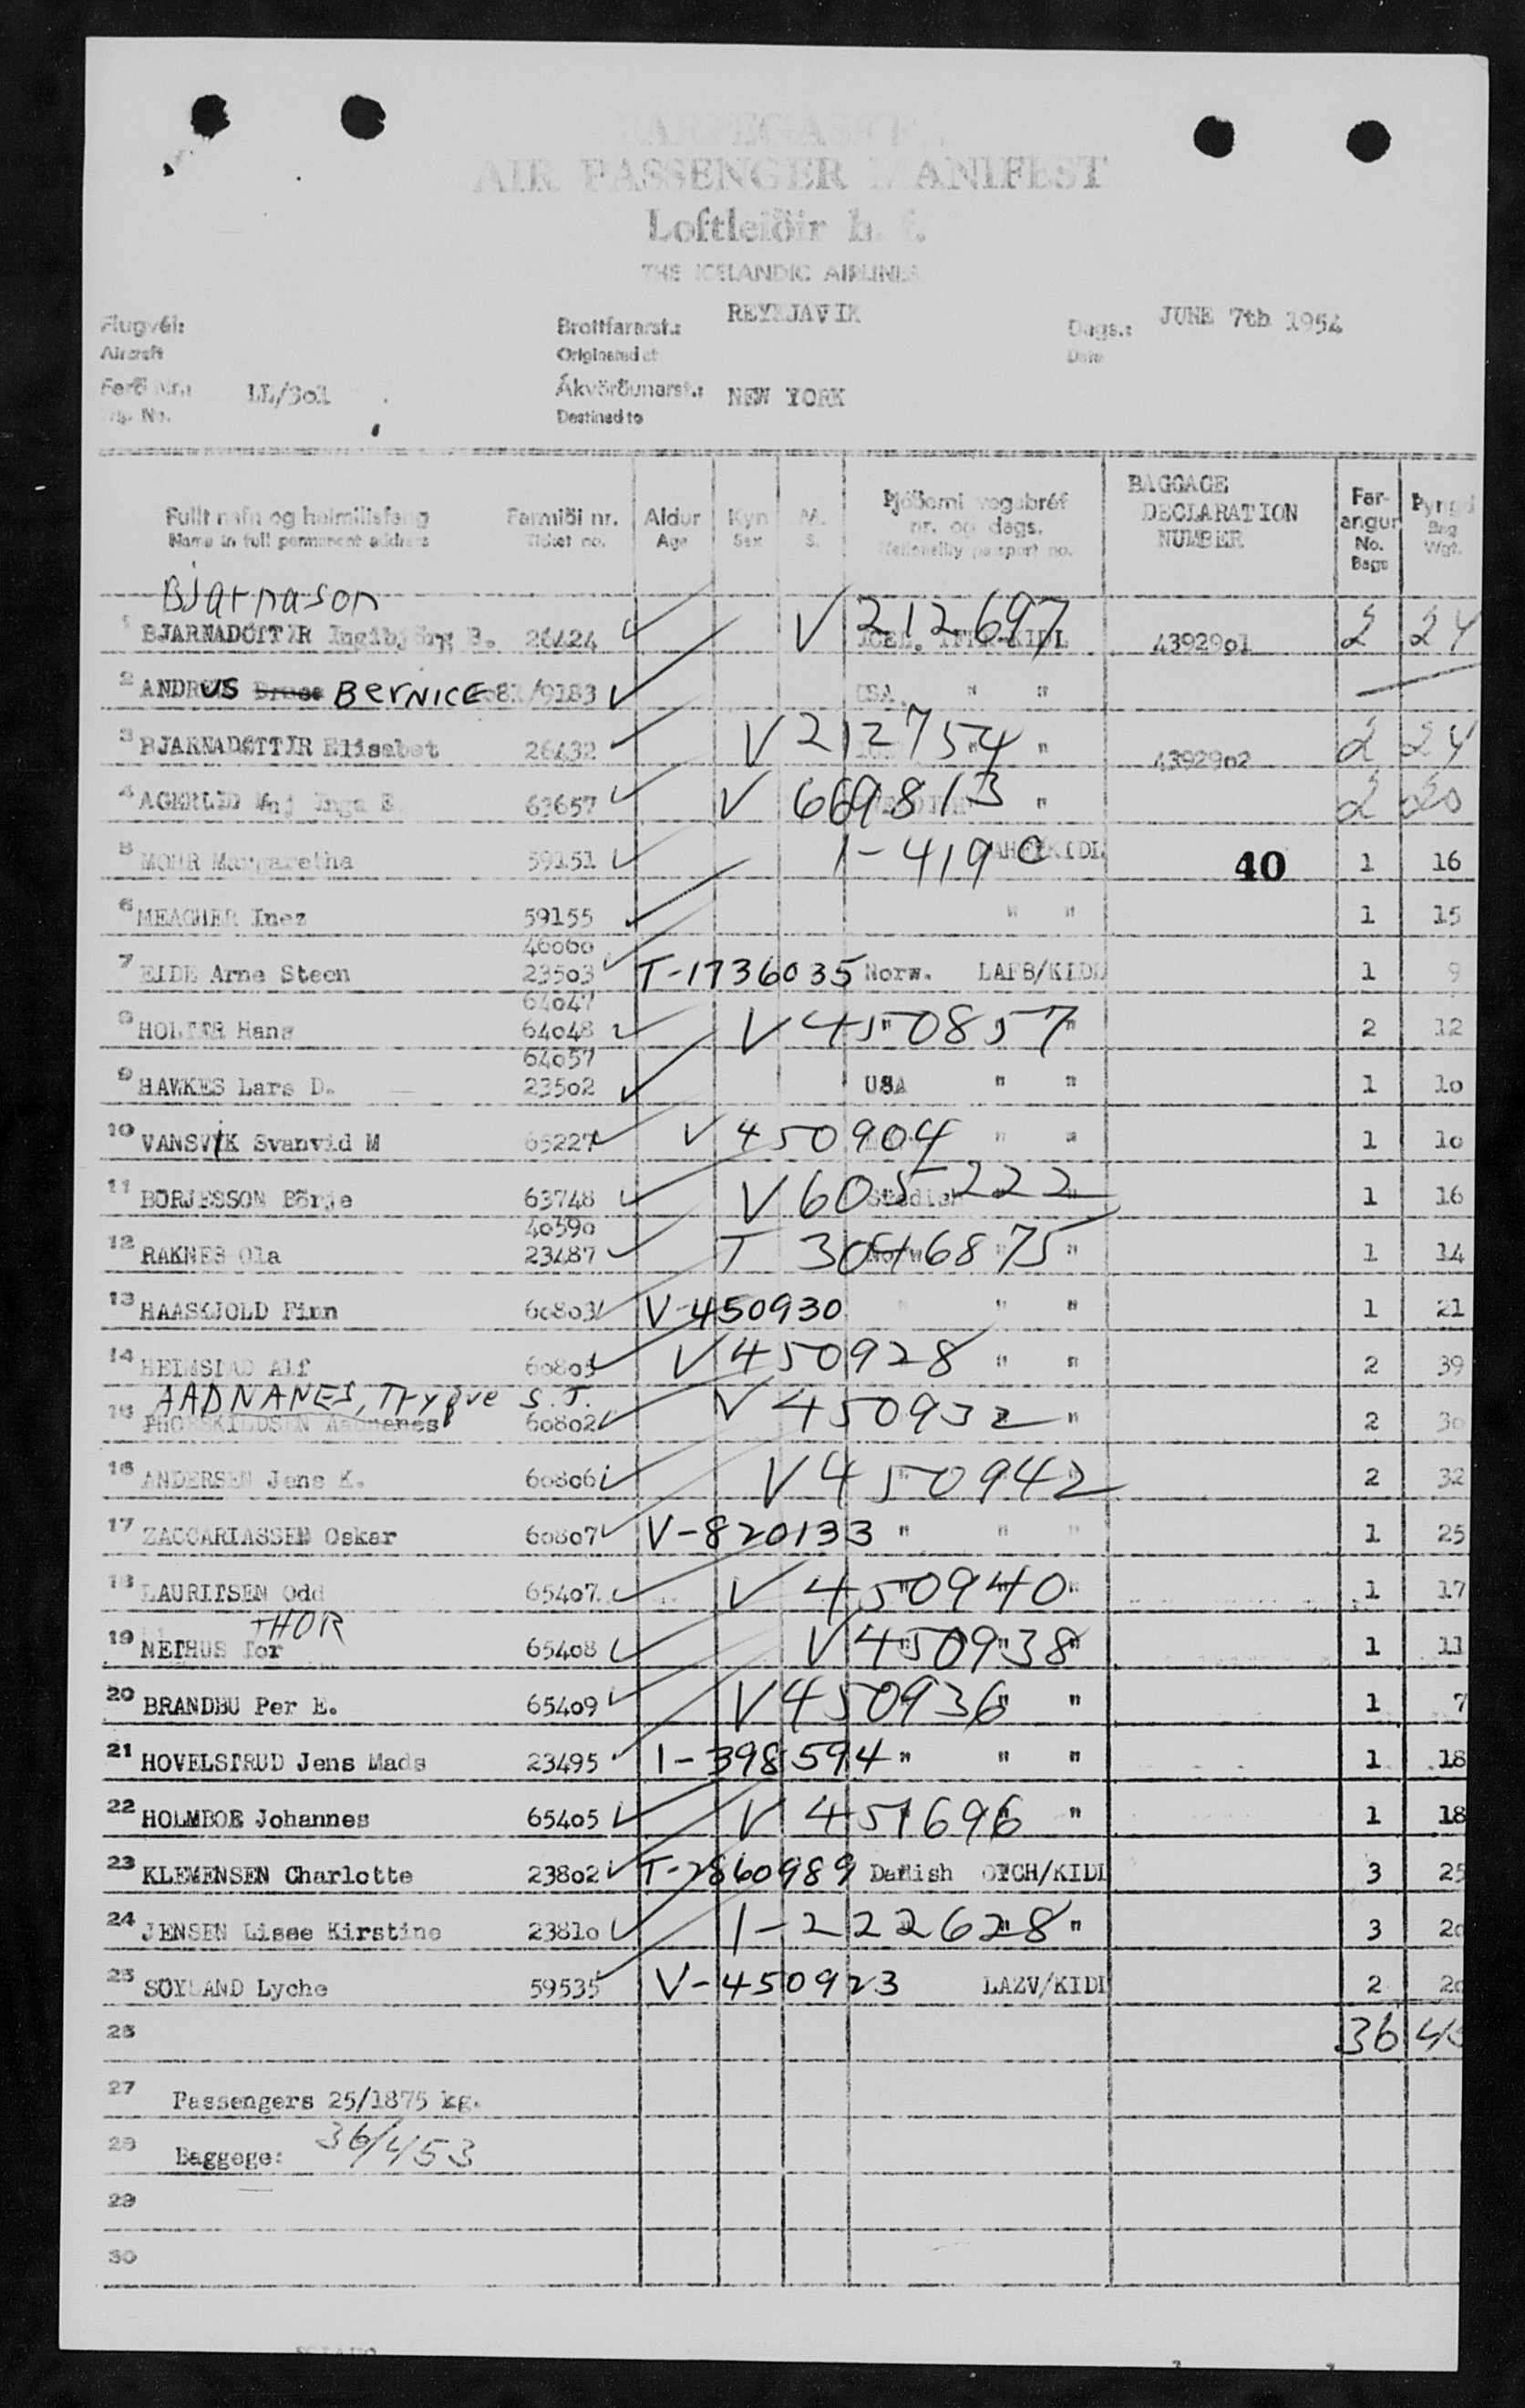 AIR PASSENGER MANIFEST
Loftleiðir h.f.
THE ICELANDIC AIRLINES
Flugvél:
Aircraft
Brottfararst.: REYKJAVIK
Originated at
Dags.: JUNE 7th 1954
Date
Ferð nr.: LL/3o1
Ákvörðunarst.: NEW YORK
Destined to
Fullt nafn og heimilisfang
Name in full permanent address
Farmiði nr.
Ticket no.
Aldur
Age
Kyn
Sex
M.
S.
Þjóðerni vegabréf
nr. og dags.
Nationality passport no.
BAGGAGE
DECLARATION
NUMBER
Far-
angur
No.
Bags
Þyngd
Bag
Wgt.
Bjarnason
1 BJARNADOTTIR Ingibjörg B. 26424 V 212697 43929o1 2 24
2 ANDRUS BERNICE /9183 USA " "
3 BJARNADOTTIR Elisabet 26432 V 212754 " " 43929o2 2 24
4 Inga 63657 V 669813 " 2 20
5 MOHR Margaretha 59151 1-4190 40 1 16
6 MEAGHER Inez 59155 " " 1 15
46o6o
7 EIDE Arne Steen 235o3 T-1736035 Norw. LAFB/KIDL 1 9
64o47
8 HOLTER Hans 64o48 V 450857 " 2 12
64o57
9 HAWKES Lars D. 235o2 USA " " 1 1o
10 VANSVIK Svanvid M 65227 V 450904 " " 1 1o
11 BORJESSON Börje 63748 V 605222 Swedish " 1 16
4o59o
12 RAKNES Ola 23487 T 3046875 Norw " " 1 14
13 HAASKJOLD Finn 6o8o3 V-450930 " " " 1 21
14 HEIMSTAD Alf 6o8o5 V 450928 " " 2 39
AADNANES, Trygve S.T.
15 THORKILDSEN Aadnanes 6o8o2 V 450932 " 2 3o
16 ANDERSEN Jens K. 6o8o6 V 450942 2 32
17 ZACCARIASSEN Oskar 6o8o7 V-820133 " " " 1 25
18 LAURITSEN Odd 654o7 V 450940 " 1 17
THOR
19 NETHUS Tor 654o8 V 450938 " " " 1 11
20 BRANDBU Per E. 654o9 V 450936 " " 1 7
21 HOVELSTRUD Jens Mads 23495 1-398594 " " " 1 18
22 HOLMBOE Johannes 654o5 V 451696 " " 1 18
23 KLEMENSEN Charlotte 238o2 T-2860989 Danish OTCH/KIDL 3 25
24 JENSEN Lisse Kirstine 2381o 1-222628 " " 3 2o
25 SOYLAND Lyche 59535 V-450923 LAZV/KIDL 2 2o
26 36
27 Passengers 25/1875 kg.
28 Baggege: 36/453
29
30